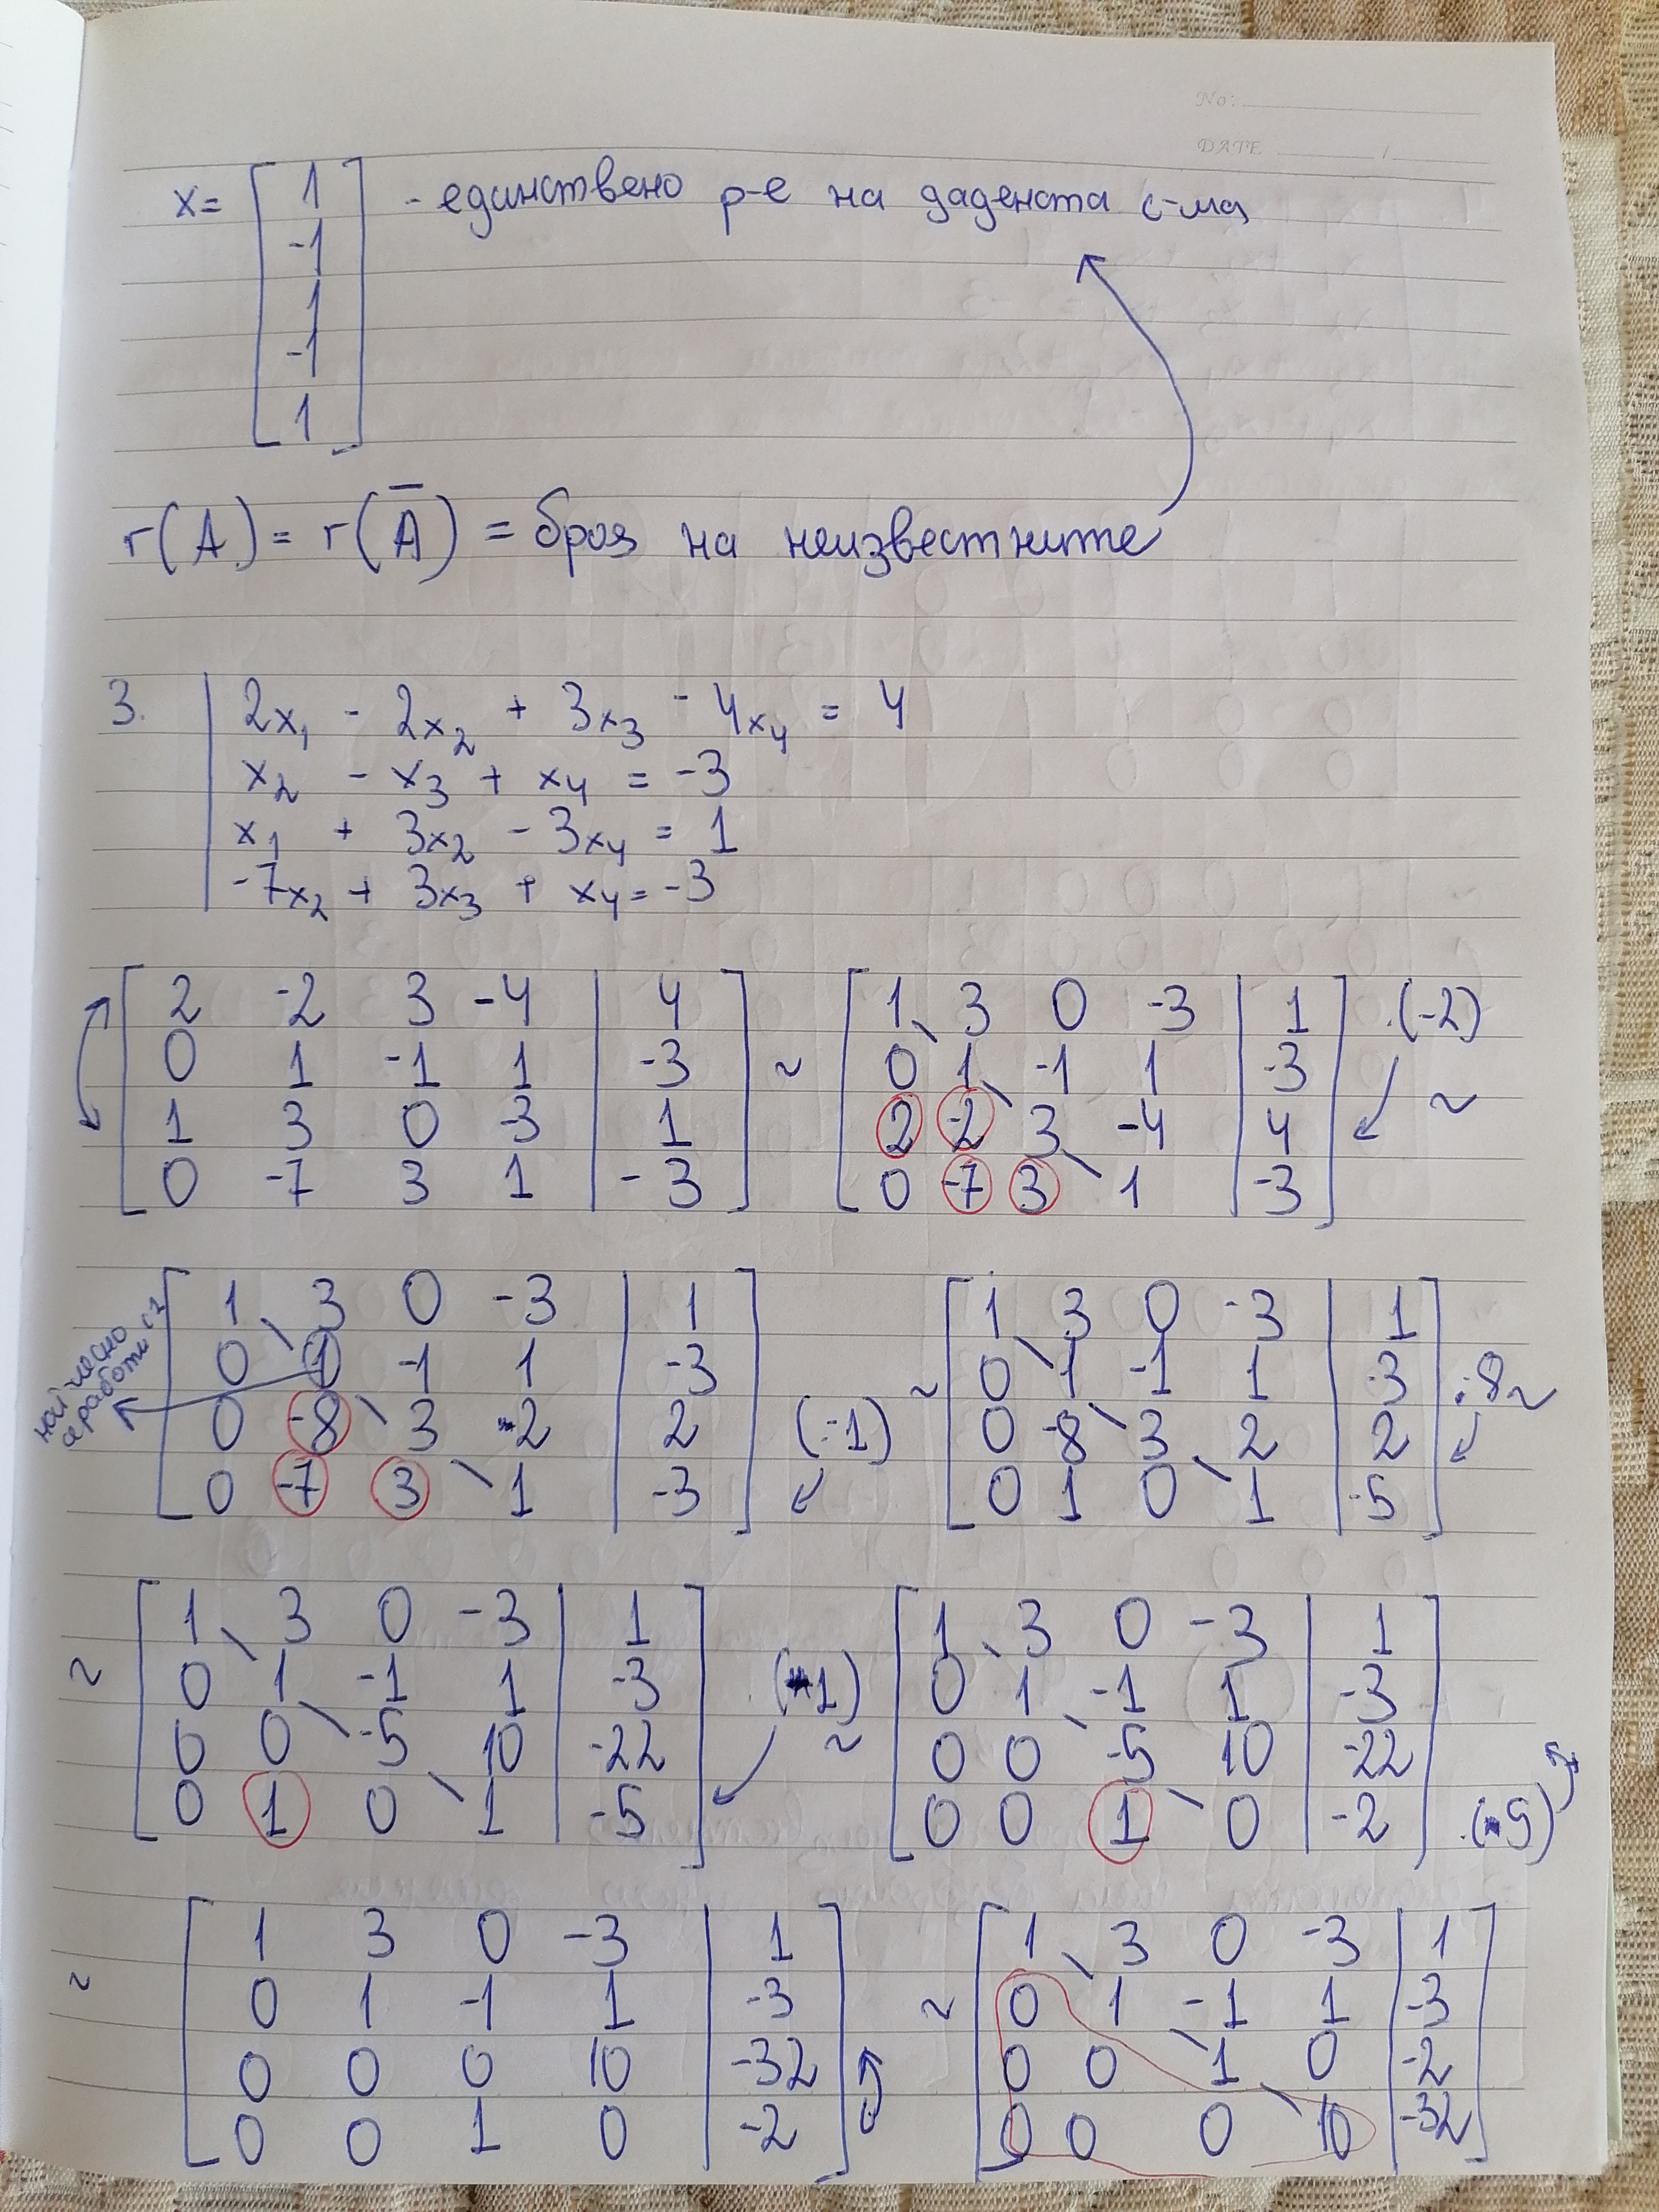 No:
DATE /
x= [ 1 - единствено р-е на дадената с-ма
-1
1
-1
1 ]
r(A) = r(A̅) = броя на неизвестните
3. | 2x₁ - 2x₂ + 3x₃ - 4x₄ = 4
x₂ - x₃ + x₄ = -3
x₁ + 3x₂ - 3x₄ = 1
-7x₂ + 3x₃ + x₄ = -3
[ 2 -2 3 -4 | 4 ]
0 1 -1 1 | -3
1 3 0 -3 | 1
0 -7 3 1 | -3
~ [ 1 3 0 -3 | 1 ] .(-2)
0 1 -1 1 | -3
2 -2 3 -4 | 4 ~
0 -7 3 1 | -3
най-често
се работи с 1
[ 1 3 0 -3 | 1 ]
0 1 -1 1 | -3
0 -8 3 2 | 2 (-1)
0 -7 3 1 | -3
~ [ 1 3 0 -3 | 1 ]
0 1 -1 1 | -3 .8 ~
0 -8 3 2 | 2
0 1 0 1 | -5
~ [ 1 3 0 -3 | 1 ]
0 1 -1 1 | -3 .(-1)
0 0 -5 10 | -22
0 1 0 1 | -5
~ [ 1 3 0 -3 | 1 ]
0 1 -1 1 | -3
0 0 -5 10 | -22
0 0 1 0 | -2 .(5)
~ [ 1 3 0 -3 | 1 ]
0 1 -1 1 | -3
0 0 0 10 | -32
0 0 1 0 | -2
~ [ 1 3 0 -3 | 1 ]
0 1 -1 1 | -3
0 0 1 0 | -2
0 0 0 10 | -32